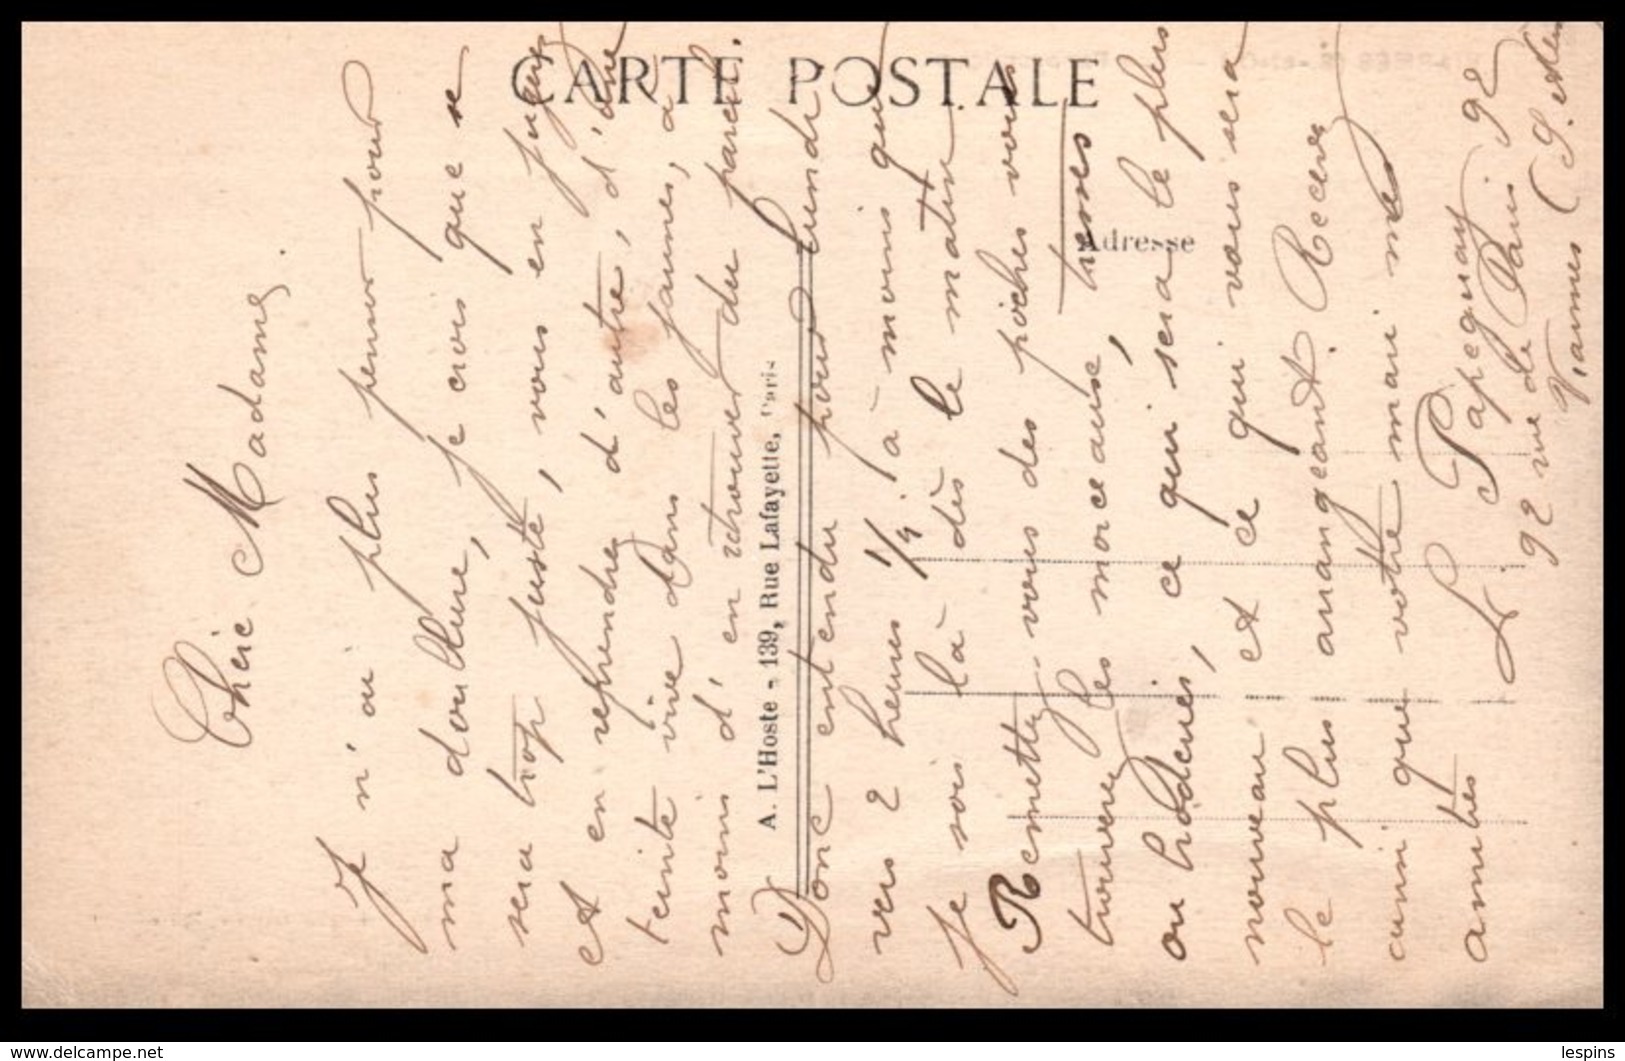 CARTE POSTALE
Adresse
A. L'Hoste - 139, Rue Lafayette, Paris
Chère Madame.
Je n'ai plus peur pour
ma doublure, je crois que se
sera trop juste, vous en jugez
et en reprendrez d'autre, d'une
teinte vive dans les jaunes, à
moins d'en retrouver du pareil.
Donc entendu pour lundi
vers 2 heures 1/4 à moins que
je sois là dès le matin.
Remettez-vous des poches vous
trouverez les morceaux,
ou brodeuses, ce qui sera le plus
nouveau et ce qui vous sera
le plus arrangeant. Recevez
ainsi que votre mari mes
amitiés
L. Papeguay
92 rue de Paris 92
Viarmes (S. et Oise
lespins
www.delcampe.net